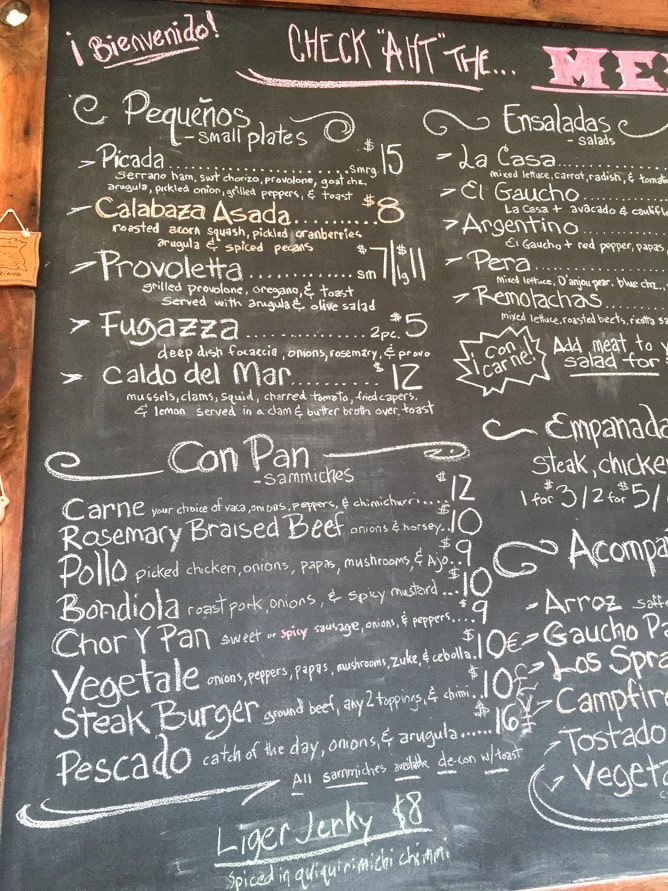 ¡Bienvenido!
CHECK "AHT" THE... ME
Pequeños
- small plates
- Picada........................smrg. $15
serrano ham, swt chorizo, provolone, goat chz,
arugula, pickled onion, grilled peppers, & toast
- Calabaza Asada.......... $8
roasted acorn squash, pickled cranberries
arugula & spiced pecans
- Provoletta ............ sm $7/lg $11
grilled provolone, oregano, & toast
served with arugula & olive salad
- Fugazza .............. 2pc. $5
deep dish focaccia, onions, rosemary, & provo
- Caldo del Mar.......... $12
mussels, clams, squid, charred tomato, fried capers,
& lemon served in a clam & butter broth over toast
Con Pan
- sammiches
Carne your choice of vaca, onions, peppers, & chimichurri..... $12
Rosemary Braised Beef onions & horsey.. $10
Pollo picked chicken, onions, papas, mushrooms, & Ajo.. $9
Bondiola roast pork, onions, & spicy mustard ... $10
Chor Y Pan sweet or spicy sausage, onions, & peppers.... $9
Vegetale onions, peppers, papas, mushrooms, zuke, & cebolla.. $10
Steak Burger ground beef, any 2 toppings, & chimi.. $10
Pescado catch of the day, onions, & arugula ...... $16
All sammiches available de-con w/toast
Liger Jerky $8
spiced in quiquirimichi chimmi
Ensaladas
- salads
- La Casa.............
mixed lettuce, carrot, radish, & tomato
- El Gaucho.........
La Casa + avacado & caulifl
- Argentino........
El Gaucho + red pepper, papas,
- Pera ..............
Mixed lettuce, D'anjou pear, blue chz.,
- Remolachas.......
mixed lettuce, roasted beets, ricotta sa
¡con carne! Add meat to y
salad for $
Empanada
steak, chicken
1 for $3/2 for $5/
Acompa
- Arroz saff
- Gaucho Pa
- Los Spra
- Campfir
- Tostado
- Vegeta